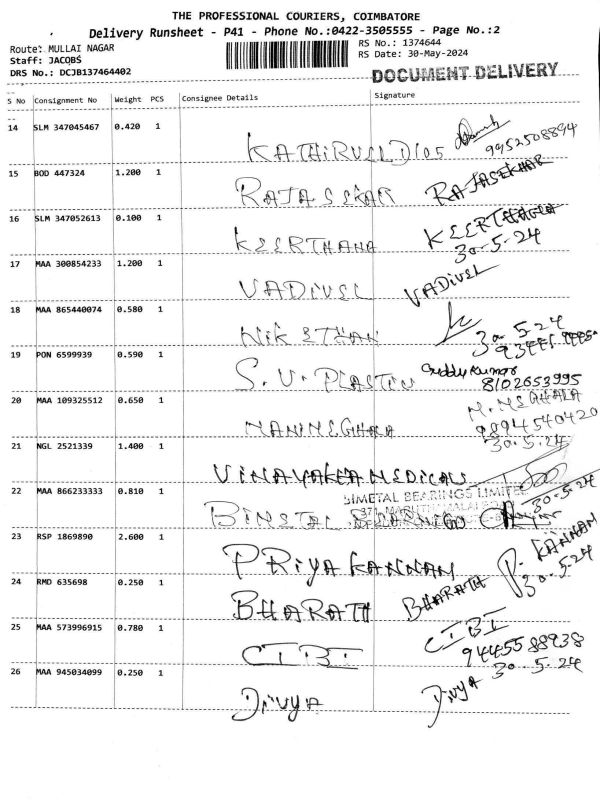 THE PROFESSIONAL COURIERS, COIMBATORE
Delivery Runsheet - P41 - Phone No.:0422-3505555 - Page No.:2
Route: MULLAI NAGAR
RS No.: 1374644
Staff: JACOBS
RS Date: 30-May-2024
DRS No.: DCJB137464402
DOCUMENT DELIVERY
S No Consignment No Weight PCS Consignee Details Signature
14 SLM 347045467 0.420 1
9952508894
15 BOD 447324 1.200 1
RAJASEKAR RAJASEKHAR
16 SLM 347052613 0.100 1
KEERTHANA KEERTHANA
30-5-24
17 MAA 300854233 1.200 1
VADIVEL VADIVEL
18 MAA 865440074 0.580 1
30-5-24
19 PON 6599939 0.590 1
S.V. 8102653995
20 MAA 109325512 0.650 1
MANIMEGHALA
9894540420
30-5-24
21 NGL 2521339 1.400 1
VINAYAKA MEDICAL
22 MAA 866233333 0.810 1
BIMETAL BEARINGS LIMITED
30-5-24
BIMETAL
23 RSP 1869890 2.600 1
PRIYA KANNAN P. KANNAN
30-5-24
24 RMD 635698 0.250 1
BHARATH BHARATH
25 MAA 573996915 0.780 1
CIBI CIBI
9445588938
26 MAA 945034099 0.250 1
30-5-24
Divya Divya